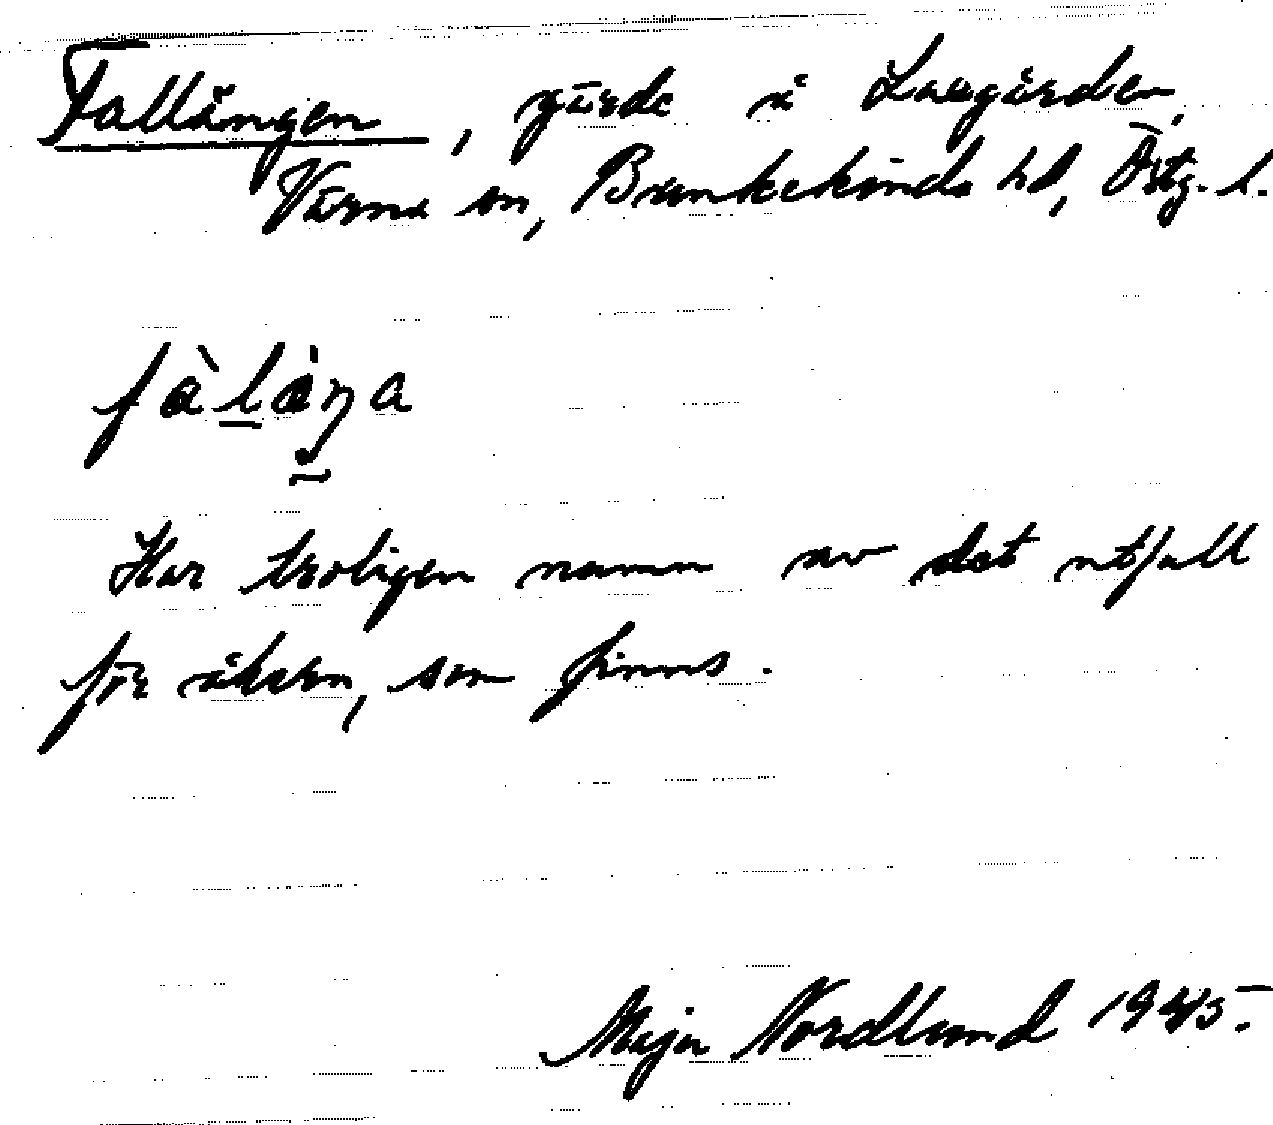 Fallängen, gärde å Laxgården,
Värna sn, Bankekinds hd, Östg. l.
fàlàŋa
Har troligen namn av det utfall
för åkern, som finns.
Maja Nordlund 1945.